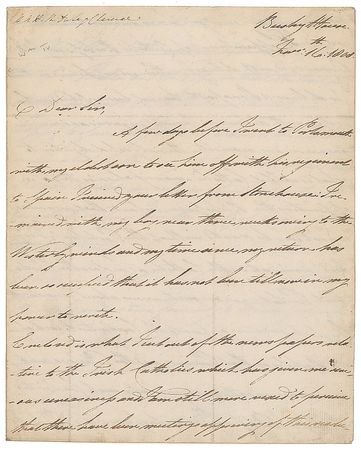 Bushy House
Novr. 16th. 1808.
Dear Sir,
A few days before I went to Portsmouth
with my eldest son to see him off with his regiment
to Spain I received your letter from Stonehouse. I re-
mained with my son near three weeks owing to the
Westerly winds and my time since my return has
been so occupied that it has not been till now in my
power to write.
Enclosed is what I cut out of the newspapers rela-
tive to the Irish Catholics which has given me
uneasiness and am still more vexed to perceive
that there have been meetings approving of this